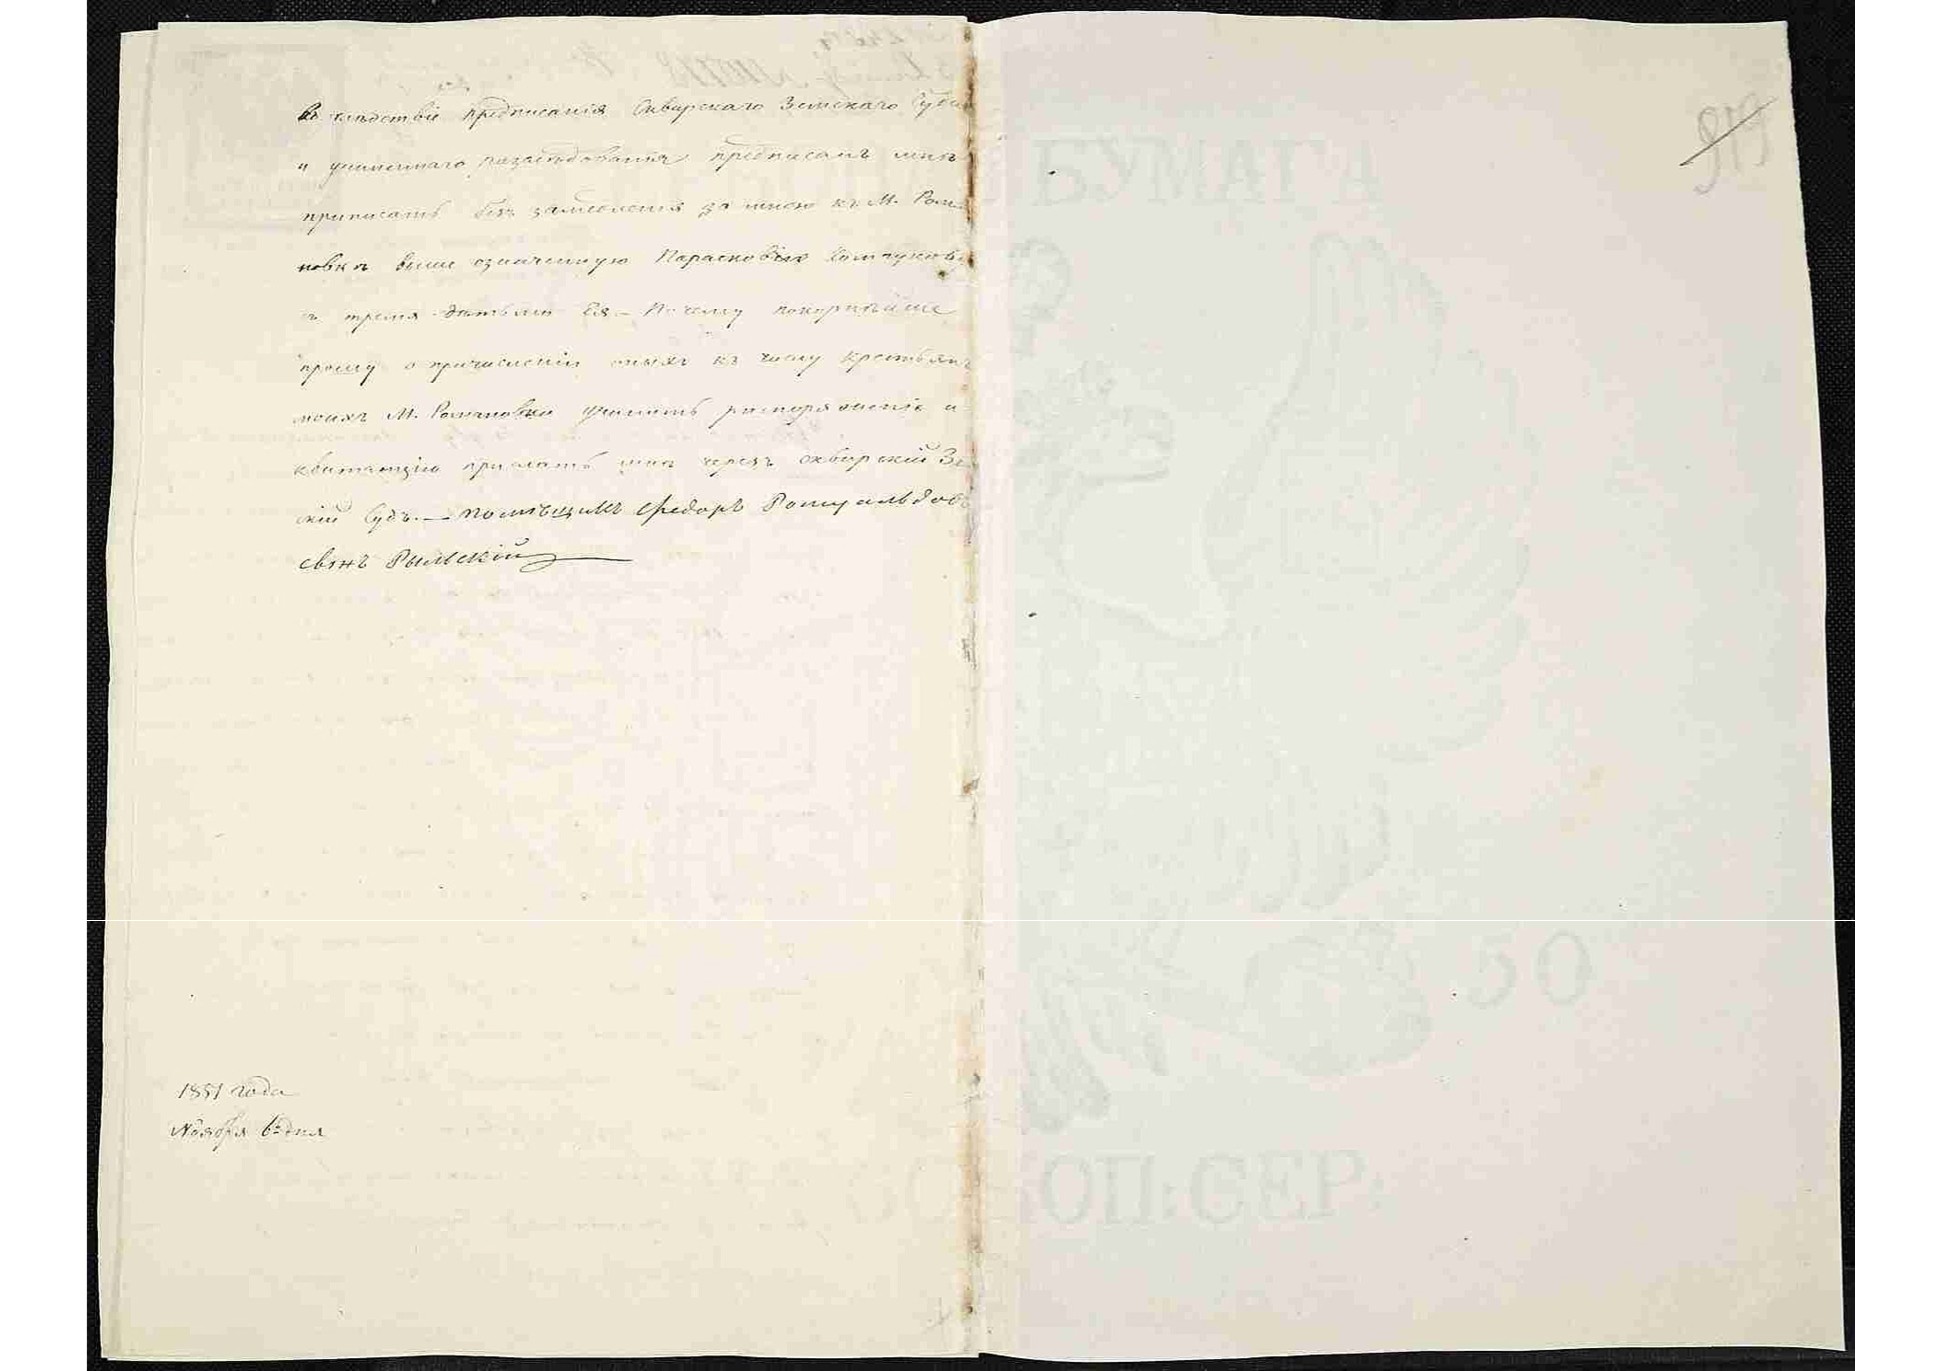 Въ слѣдствіе предписанія Сквирскаго Земскаго Суда
и учиненнаго разслѣдованія предписанъ мнѣ
приписать безъ замедленія за мною къ М. Рома
новкѣ выше означенную Парасковію
съ тремя дѣтьми Ея — Почему покорнѣйше
прошу о причисленіи оныхъ къ числу крестьянъ
моихъ М. Романовки учинить распоряженіе и
квитанцію прислать мнѣ черезъ сквирскій Зе
скій Судъ. — Помѣщикъ Федоръ Ромуальдов
сынъ Рыльскій
1851 года
Ноября 6 дня
БУМАГА
50
КОП: СЕР:
919